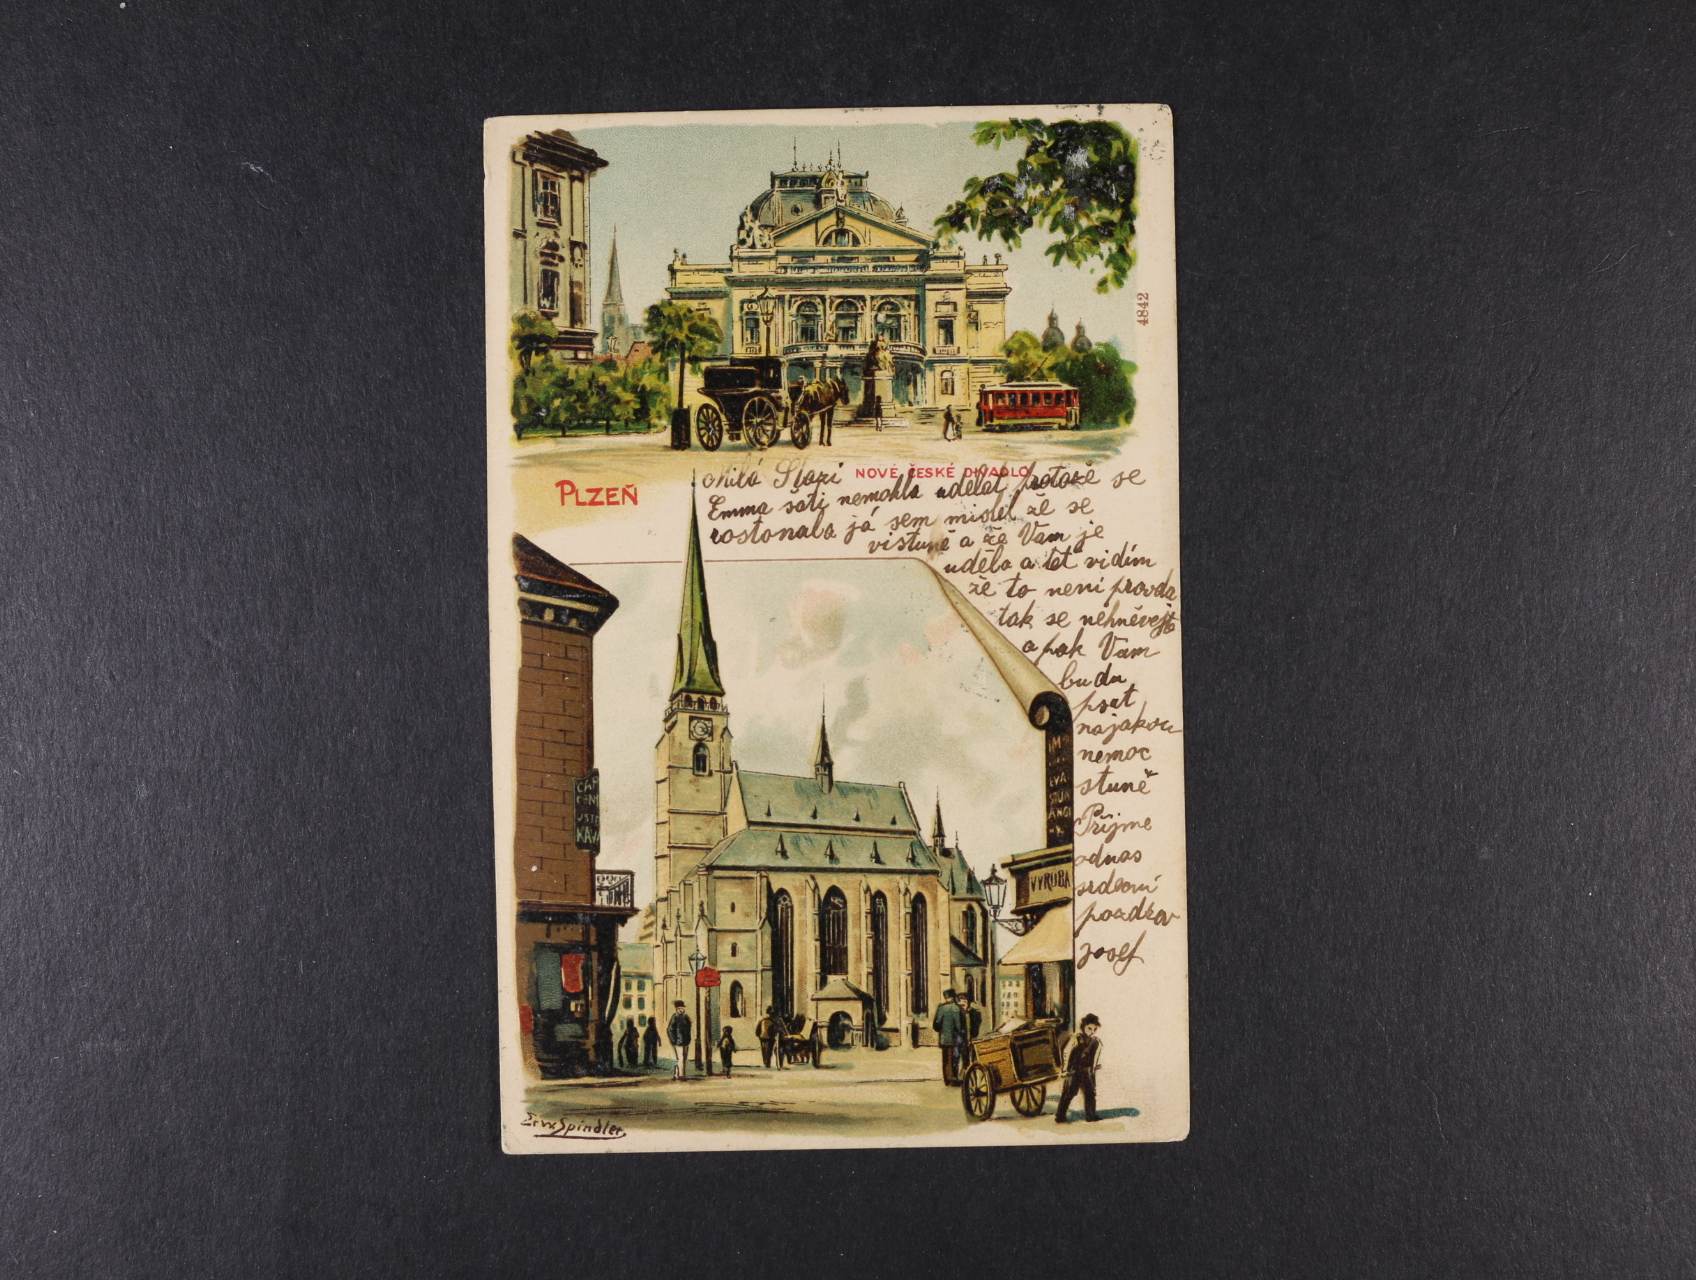 4842
NOVÉ ČESKÉ DIVADLO
PLZEŇ
Milá Slazi
Emma sáti nemohla udělat protože se
rostonala já sem mislel že se
vistuně a že Vám je
uděla a teť vidím
že to neni pravda
tak se nehněvejte
a pak Vam
budu
psat
najakou
nemoc
stuně
Příjme
odnas
srdeční
pozdrav
Josef
KÁVA
VÝROBA
Erw. Spindler.